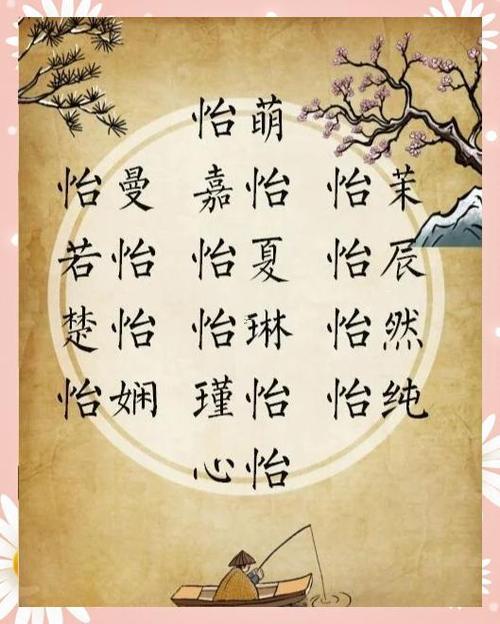 怡萌
怡曼 嘉怡 怡茉
若怡 怡夏 怡辰
楚怡 怡琳 怡然
怡娴 瑾怡 怡纯
心怡